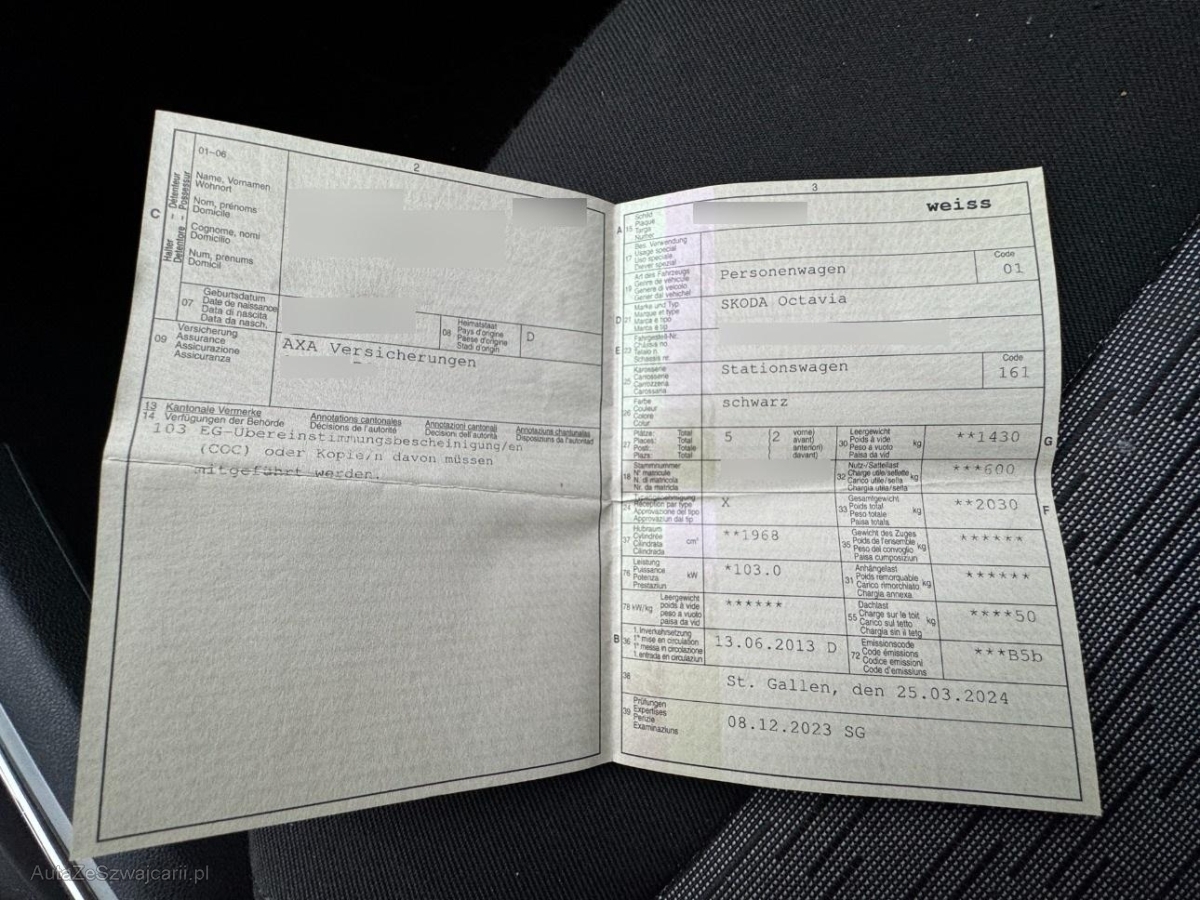 2
01–06
Name, Vornamen
Wohnort
Nom, prénoms
Domicile
Cognome, nomi
Domicilio
Num, prenums
Domicil
C
Halter Détenteur
Detentore Possessur
07
Geburtsdatum
Date de naissance
Data di nascita
Data da nasch.
08
Heimatstaat
Pays d'origine
Paese d'origine
Stadi d'origin
D
09
Versicherung
Assurance
Assicurazione
Assicuranza
AXA Versicherungen
13 Kantonale Vermerke
Annotations cantonales
Annotazioni cantonali
Annotaziuns chantunalas
14 Verfügungen der Behörde
Décisions de l'autorité
Decisioni dell'autorità
Disposiziuns da l'autoritad
103 EG-Übereinstimmungsbescheinigung/en
(COC) oder Kopie/n davon müssen
mitgeführt werden.
3
A 15
Schild
Plaque
Targa
Numer
weiss
17
Bes. Verwendung
Usage spécial
Uso speciale
Diever spezial
19
Art des Fahrzeugs
Genre de véhicule
Genere di veicolo
Gener dal vehichel
Personenwagen
Code
01
D 21
Marke und Typ
Marque et type
Marca e tipo
Marca e tip
SKODA Octavia
E 23
Fahrgestell-Nr.
Châssis no.
Telaio n.
Schassis nr.
25
Karosserie
Carrosserie
Carrozzeria
Carossaria
Stationswagen
Code
161
26
Farbe
Couleur
Colore
Colur
schwarz
27
Plätze: Total
Places: Total
Posti: Totale
Plazs: Total
5
(2 vorne)
avant)
anteriori)
davant)
30
Leergewicht
Poids à vide
Peso a vuoto
Paisa da vid
kg
**1430
G
18
Stammnummer
N° matricule
N. di matricola
Nr. da matricla
32
Nutz-/Sattellast
Charge utile/sellette
Carico utile/sella
Chargia utila/sella
kg
***600
24
Typengenehmigung
Réception par type
Approvazione del tipo
Approvaziun dal tip
X
33
Gesamtgewicht
Poids total
Peso totale
Paisa totala
kg
**2030
F
37
Hubraum
Cylindrée
Cilindrata
Cilindrada
cm³
**1968
35
Gewicht des Zuges
Poids de l'ensemble
Peso del convoglio
Paisa cumposiziun
kg
******
76
Leistung
Puissance
Potenza
Prestaziun
kW
*103.0
31
Anhängelast
Poids remorquable
Carico rimorchiato
Chargia annexa
kg
******
78 kW/kg
Leergewicht
poids à vide
peso a vuoto
paisa da vid
******
55
Dachlast
Charge sur le toit
Carico sul tetto
Chargia sin il tetg
kg
****50
B 36
1. Inverkehrsetzung
1re mise en circulation
1a messa in circolazione
1. entrada en circulaziun
13.06.2013 D
72
Emissionscode
Code émissions
Codice emissioni
Code d'emissiuns
***B5b
38
St. Gallen, den 25.03.2024
39
Prüfungen
Expertises
Perizie
Examinaziuns
08.12.2023 SG
AutaZeSzwajcarii.pl